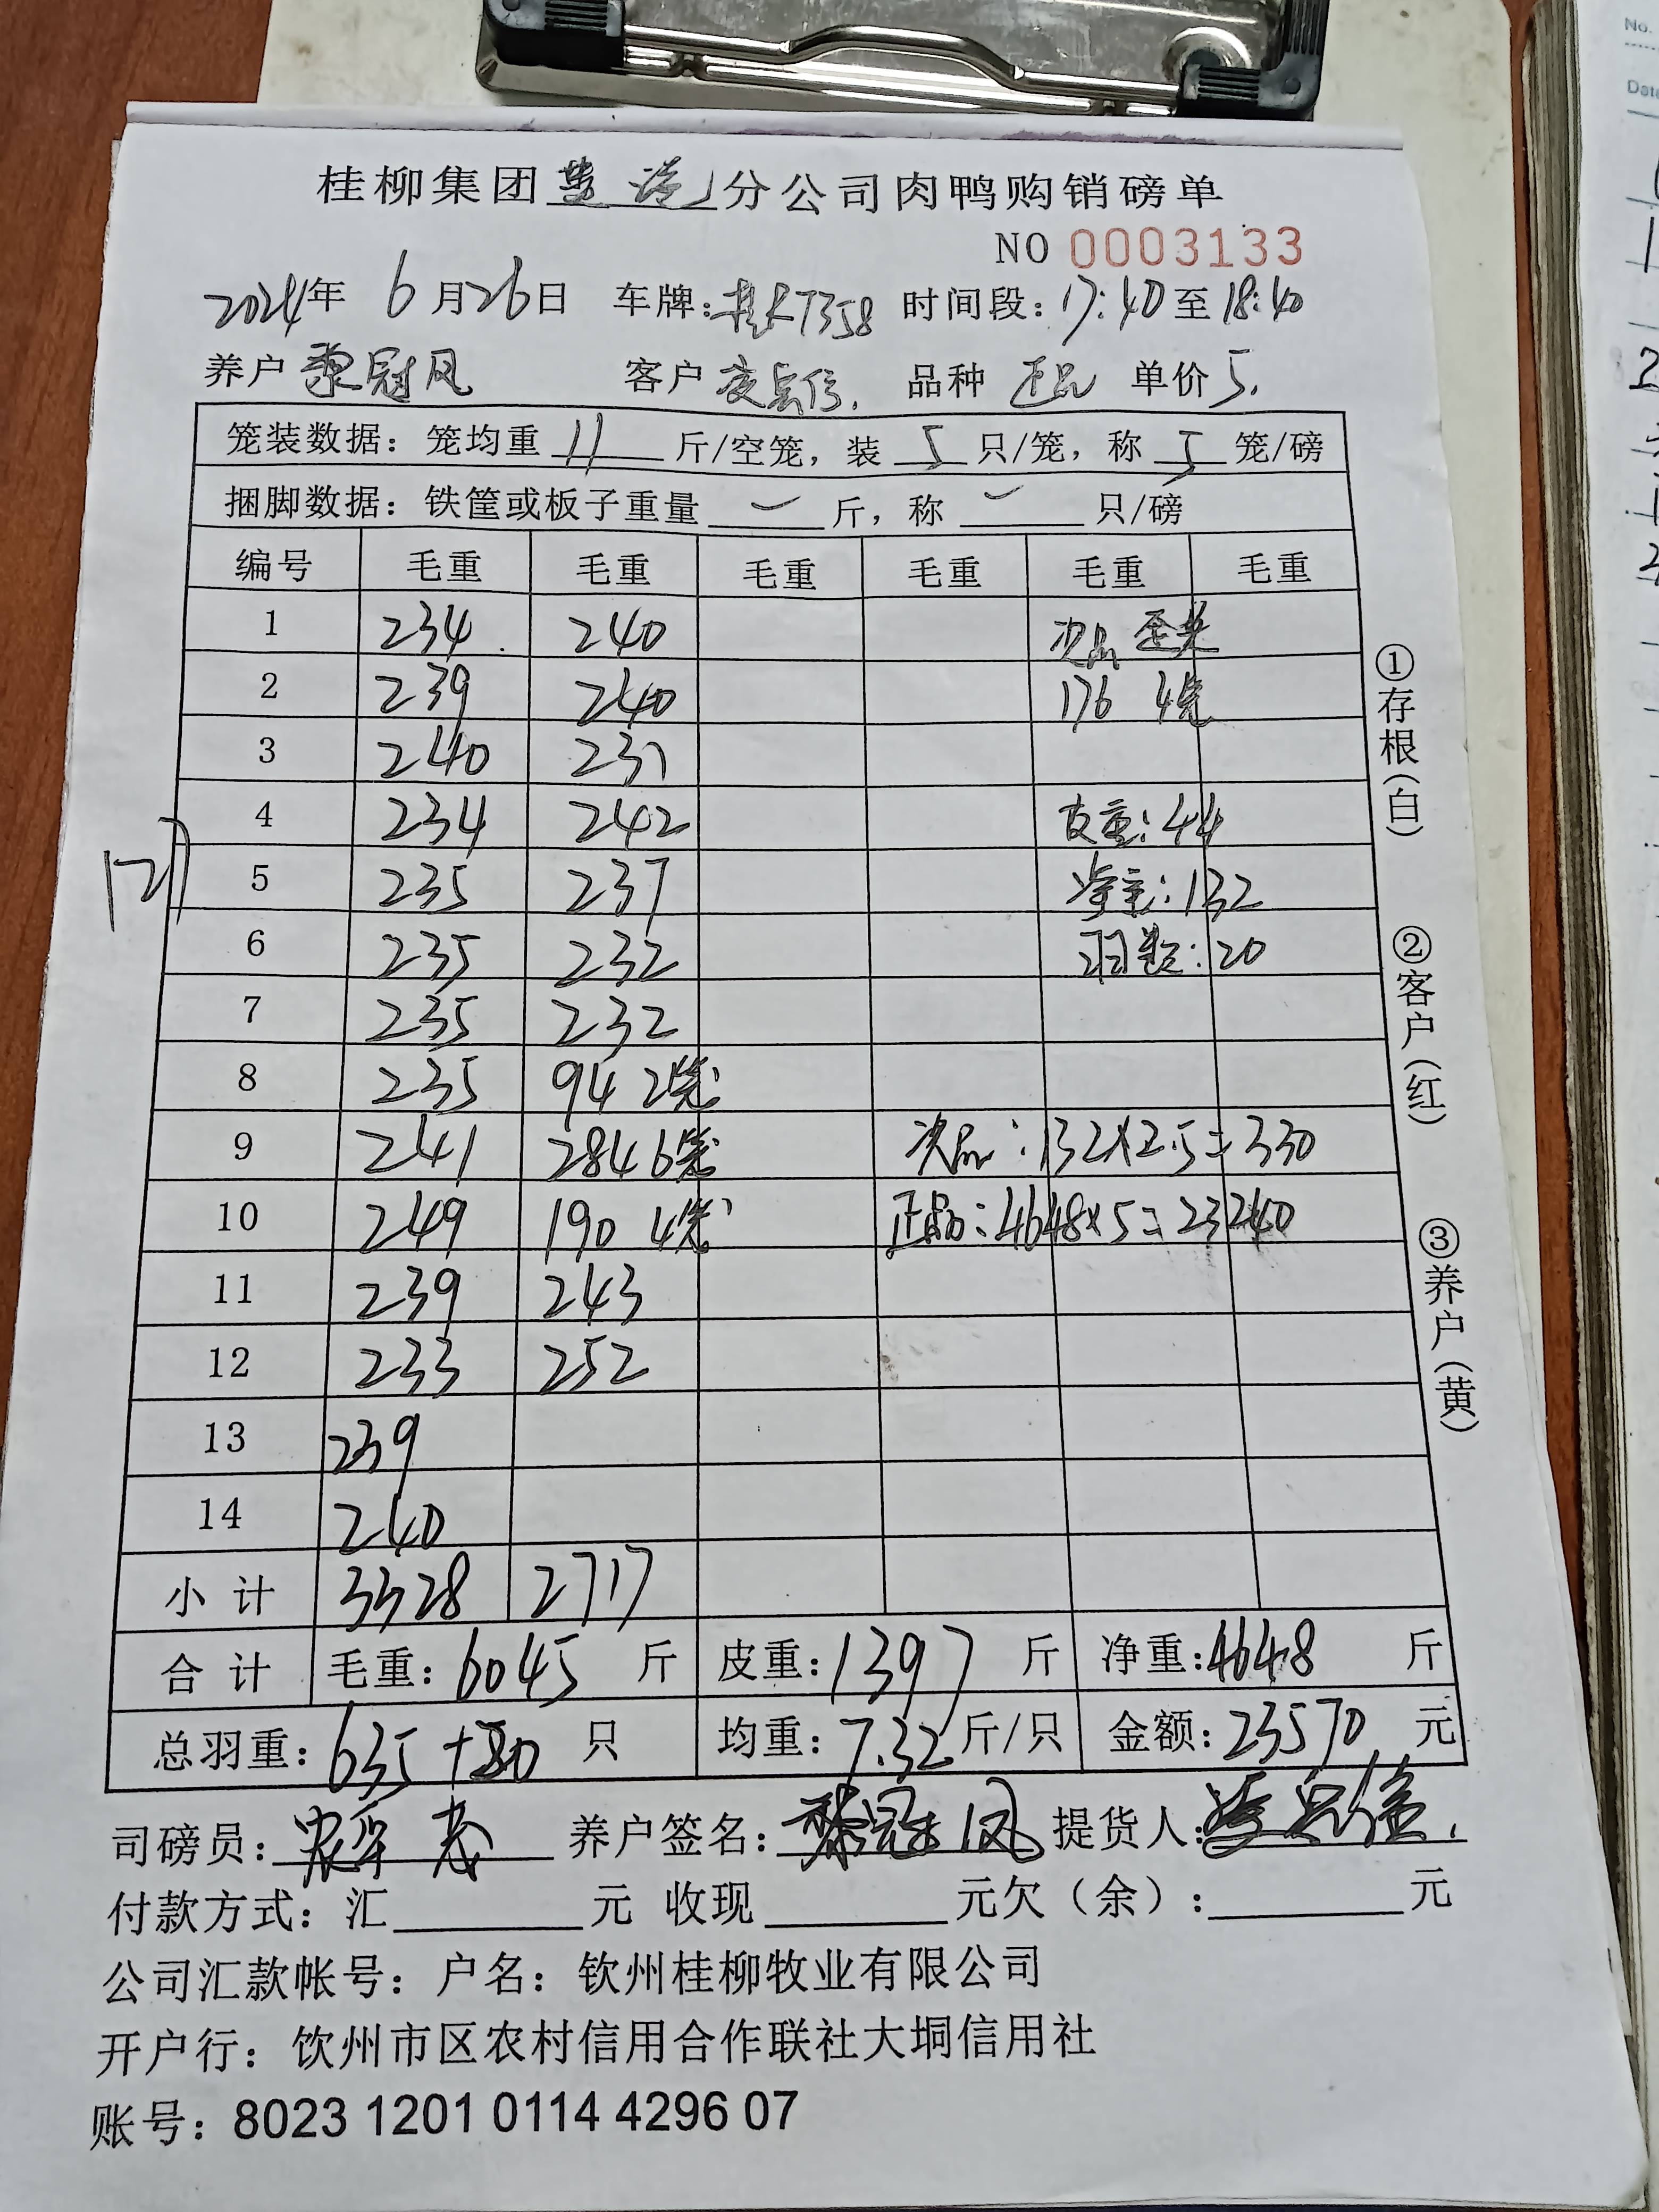 桂柳集团 分公司肉鸭购销磅单
NO 0003133
2024年 6月26日 车牌: T358 时间段:17:40至18:40
养户 黎冠凤 客户 品种 正品 单价5.
笼装数据: 笼均重 11 斤/空笼, 装 5 只/笼, 称 5 笼/磅
捆脚数据: 铁筐或板子重量 斤, 称 只/磅
编号 毛重 毛重 毛重 毛重 毛重 毛重
1 234 240 次品
2 239 240 176 4笼
3 240 231
4 234 242 皮重:44
5 235 237 净重:132
6 235 232 羽数:20
7 235 232
8 235 94 2笼
9 241 284 6笼 次品:132×2.5=330
10 249 190 4笼 正品:4648×5=23240
11 239 243
12 233 252
13 239
14 240
小计 3328 2717
合计 毛重:6045 斤 皮重:1397 斤 净重:4648 斤
总羽重:635+20 只 均重:7.32斤/只 金额:23570 元
司磅员: 养户签名:黎冠凤 提货人:
付款方式: 汇 元 收现 元欠(余): 元
公司汇款帐号: 户名: 钦州桂柳牧业有限公司
开户行: 饮州市区农村信用合作联社大垌信用社
账号: 8023 1201 0114 4296 07
127
①存根(白)
②客户(红)
③养户(黄)
No.
Date